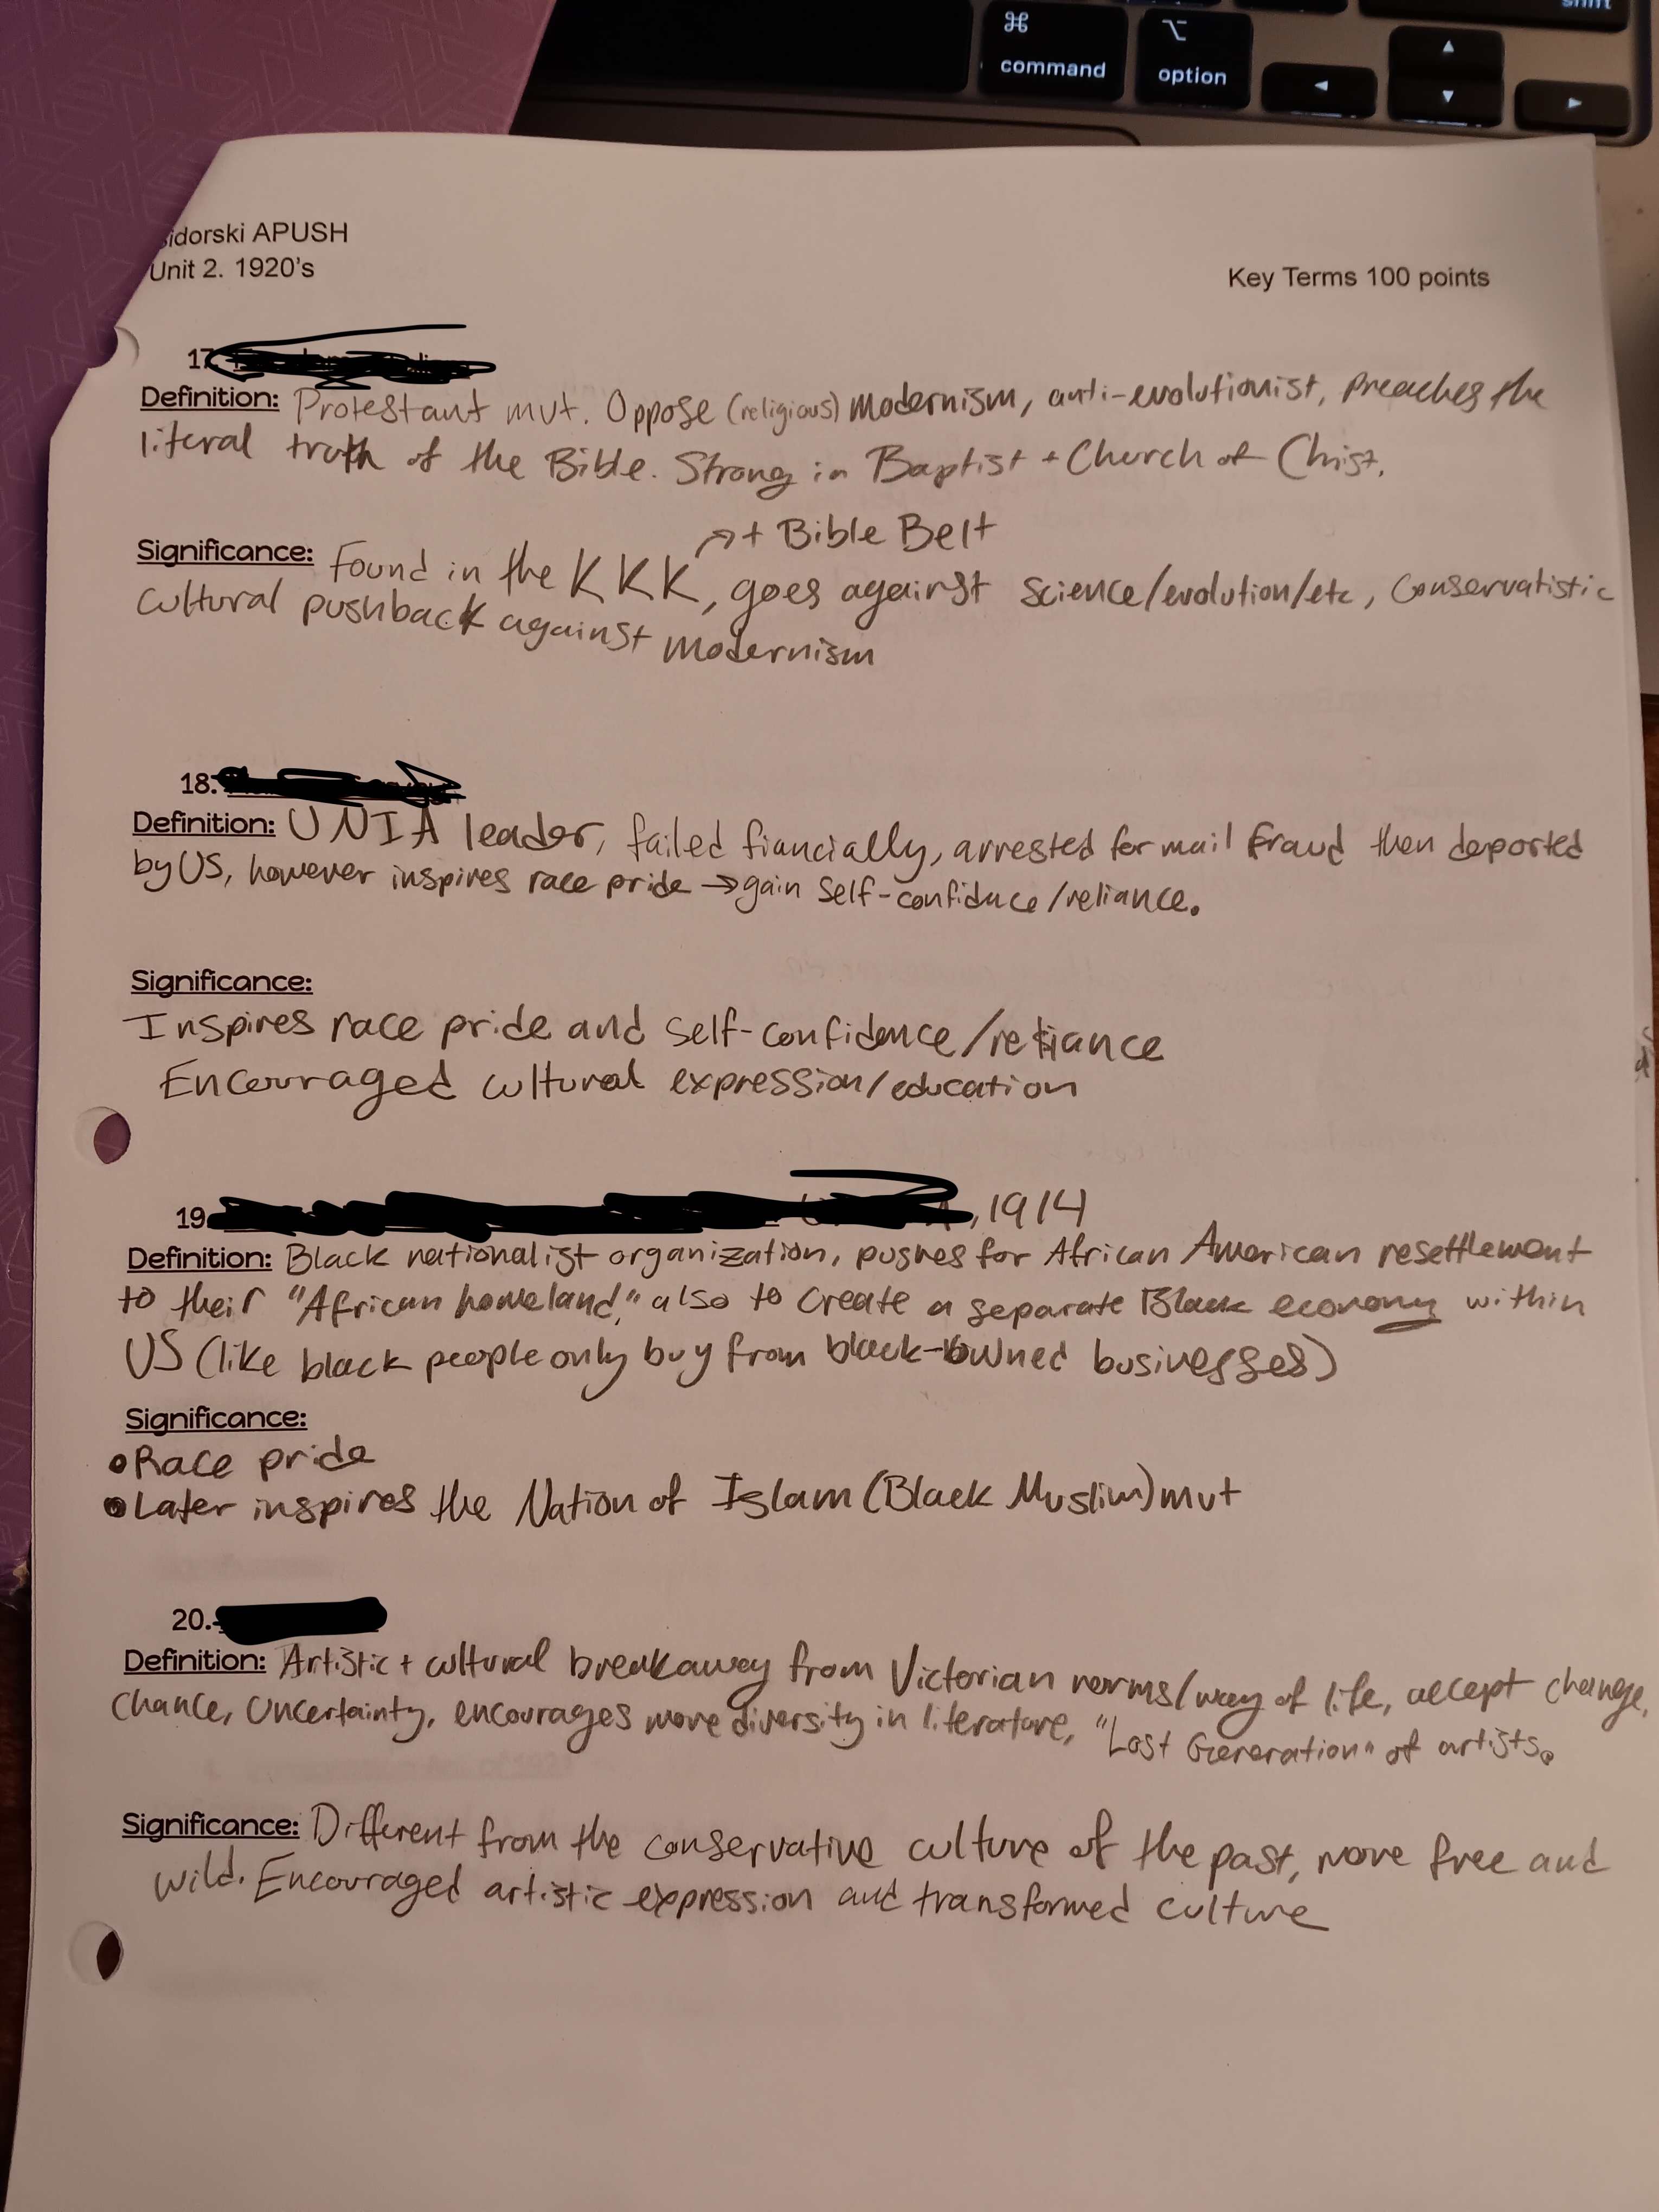 shift
⌘
command
⌥
option
idorski APUSH
Unit 2. 1920's
Key Terms 100 points
17.
Definition: Protestant mvt. Oppose (religious) modernism, anti-evolutionist, preaches the
literal truth of the Bible. Strong in Baptist + Church of Christ.
+ Bible Belt
Significance: Found in the KKK, goes against science/evolution/etc, conservatistic
cultural pushback against modernism
18.
Definition: UNIA leader, failed fiancially, arrested for mail fraud then deported
by US, however inspires race pride → gain self-confidence/reliance.
Significance:
Inspires race pride and self-confidence/reliance
Encouraged cultural expression/education
19. , 1914
Definition: Black nationalist organization, pushes for African American resettlement
to their "African homeland," also to create a separate Black economy within
US (like black people only buy from black-owned businesses)
Significance:
• Race pride
• Later inspires the Nation of Islam (Black Muslim) mvt
20.
Definition: Artistic + cultural breakaway from Victorian norms/way of life, accept change,
chance, uncertainty, encourages more diversity in literature, "Lost Generation" of artists.
Significance: Different from the conservative culture of the past, more free and
wild. Encouraged artistic expression and transformed culture